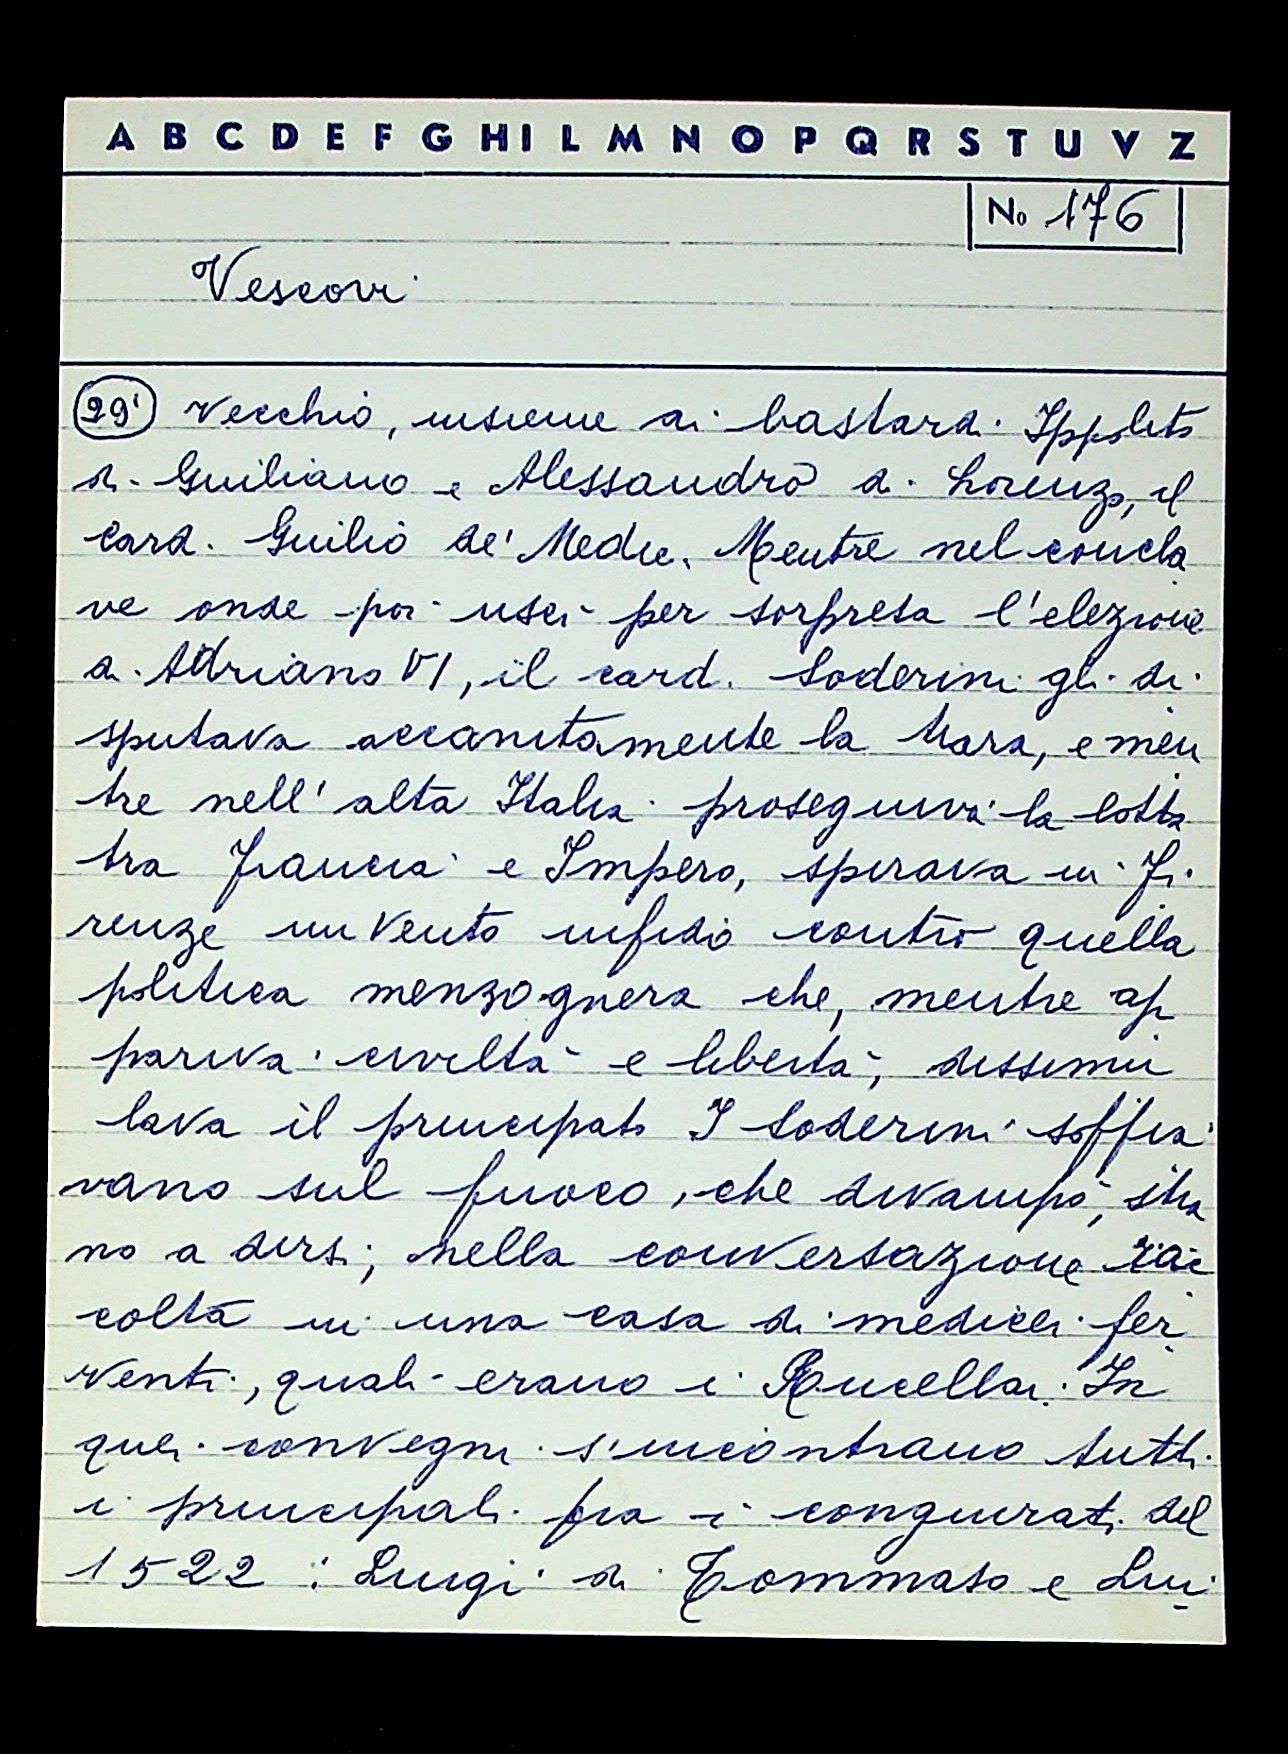 A B C D E F G H I L M N O P Q R S T U V Z
No 176
Vescovi
29' vecchio, insieme ai bastardi Ippolito
di Guiliano e Alessandro di Lorenzo, il
Card. Guilio de' Medic. Mentre nel concla
ve onde poi uscì per sorpresa l'elezione
di Adriano VI, il card. Soderini gli di
sputava accanitamente la tiara, e men
tre nell'alta Italia proseguiva la lotta
tra Francia e Impero, spirava in Fi
renze un vento infido contro quella
politica menzognera che, mentre ap
pariva civiltà e libertà, dissimu
lava il principato I Soderini soffia
vano sul fuoco, che divampò, stra
no a dirsi, nella conversazione rac
colta in una casa di medicei fer
venti, quali erano i Rucellai. In
quei convegni s'incontrano tutti
i principali fra i congiurati del
1522: Luigi di Tommaso e Lui